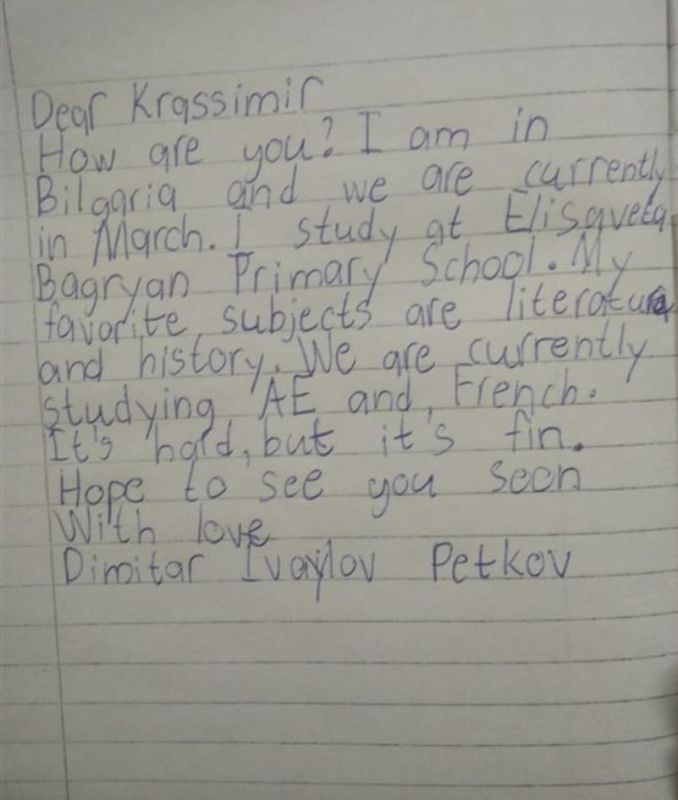 Dear Krassimir
How are you? I am in
Bilgaria and we are currently
in March. I study at Elisaveta
Bagryan Primary School. My
favorite subjects are literature
and history. We are currently
studying AE and French.
It's hald, but it's fin.
Hope to see you soon
With love
Dimitar Ivaylov Petkov